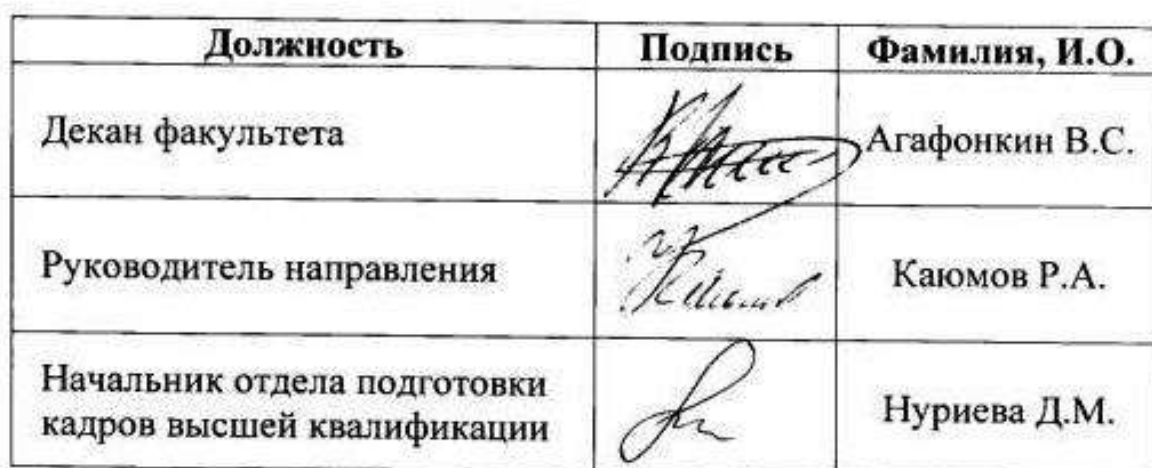 Должность Подпись Фамилия, И.О.
Декан факультета Агафонкин В.С.
Руководитель направления Каюмов Р.А.
Начальник отдела подготовки
кадров высшей квалификации Нуриева Д.М.